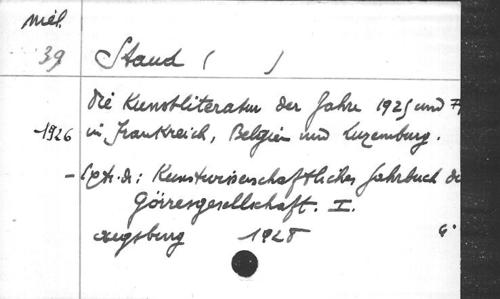 mél.
39
Staud ( )
Die Kunstliteratur der Jahre 1925 und
1926 in Frankreich, Belgien und Luxemburg.
- Kunstwissenschaftliches Jahrbuch de
Görresgesellschaft. I.
Augsburg 1928 4°